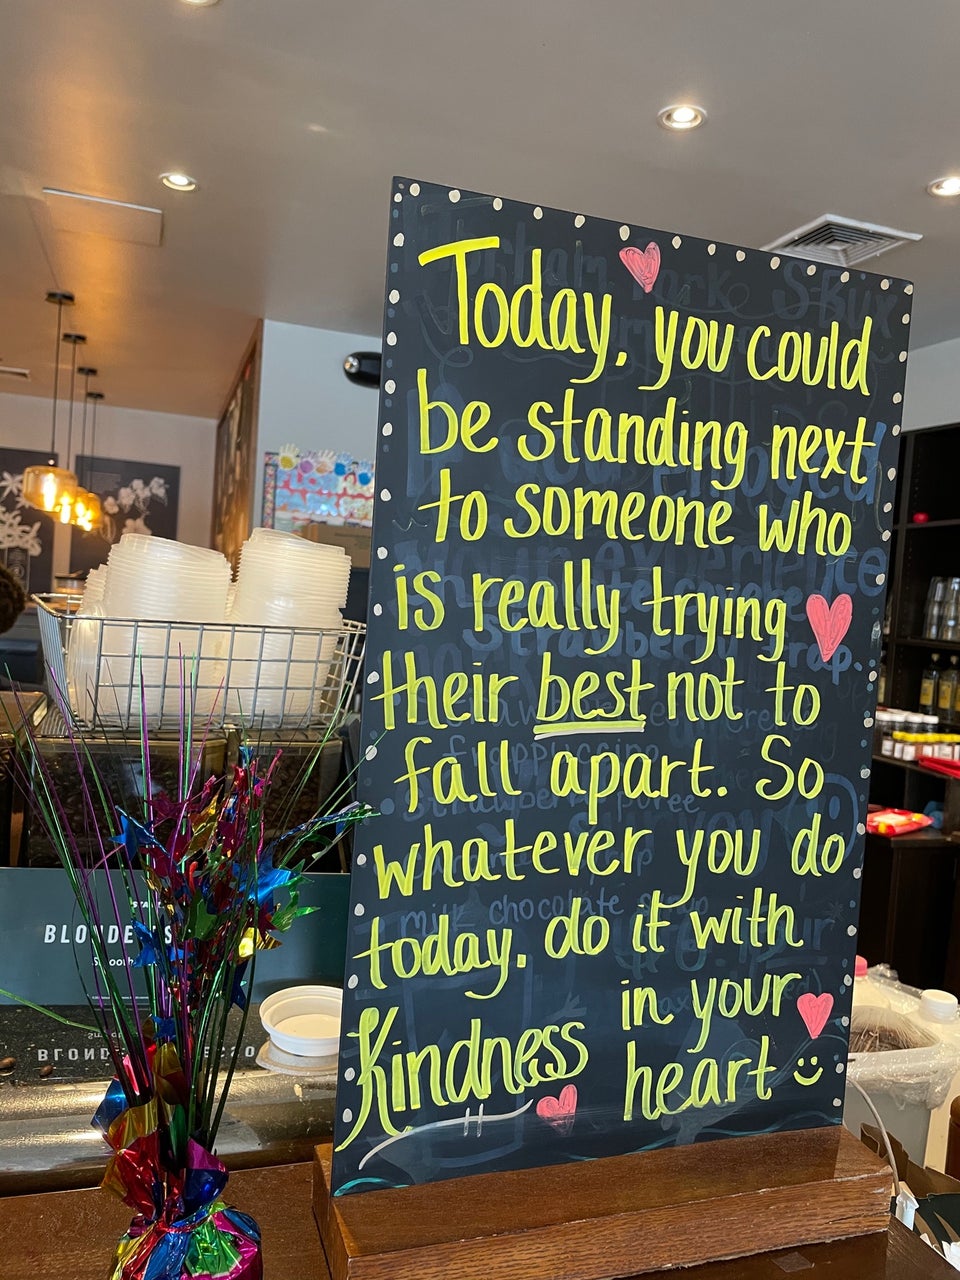 Today, you could
be standing next
to someone who
is really trying
their best not to
fall apart. So
whatever you do
today, do it with
Kindness in your
heart
BLONDE